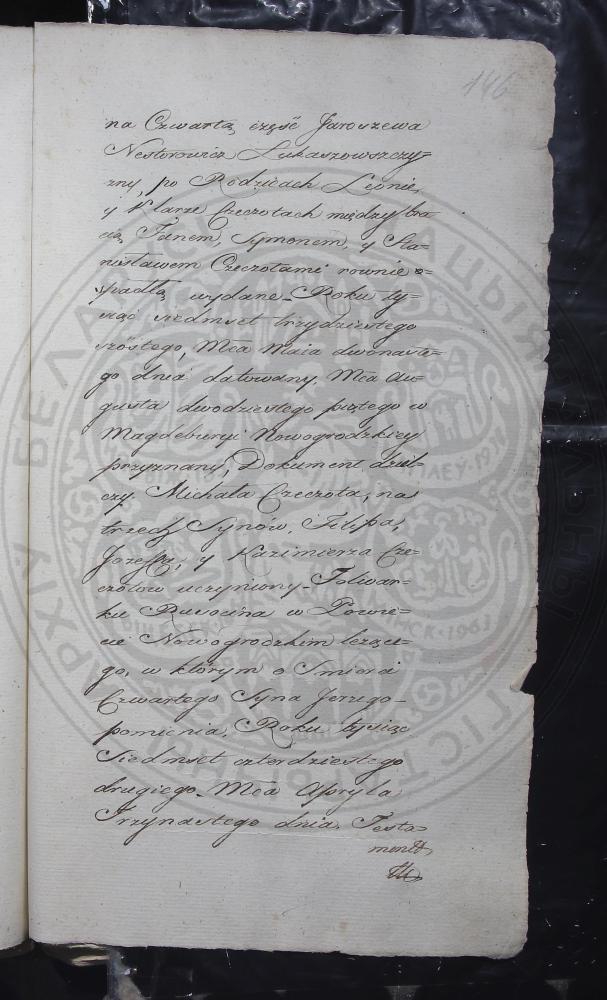 146
na Czwartą część Jaroszewa
Nestorowicz Łukaszowszczy=
zny, po Rodzicach Leonie,
y Klarze Czeczotach między bra=
cią Janem, Symonem, y Sta=
nisławem Czeczotami rownie o=
spadłą wydane. Roku ty=
siąc siedmset trzydziestego
szóstego, Mca Maia dwónaste=
go dnia datowany, Mca Au=
gusta dwodziestego piątego w
Magdeburyi Nowogrodzkiey
przyznany, Dokument dziel=
czy Michała Czeczota, na
trzech Synów, Filipa,
Jozefa, y Kazimierza Cze=
czotow uczyniony Folwar=
ku Ruvocina w Powie=
cie Nowogrodzkim leżące=
go, w którym o Smierci
Czwartego Syna Jerzego
pomienia, Roku tysiąc
Siedmset czterdziestego
drugiego Mca Apryla
Trzynastego dnia, Testa=
ment